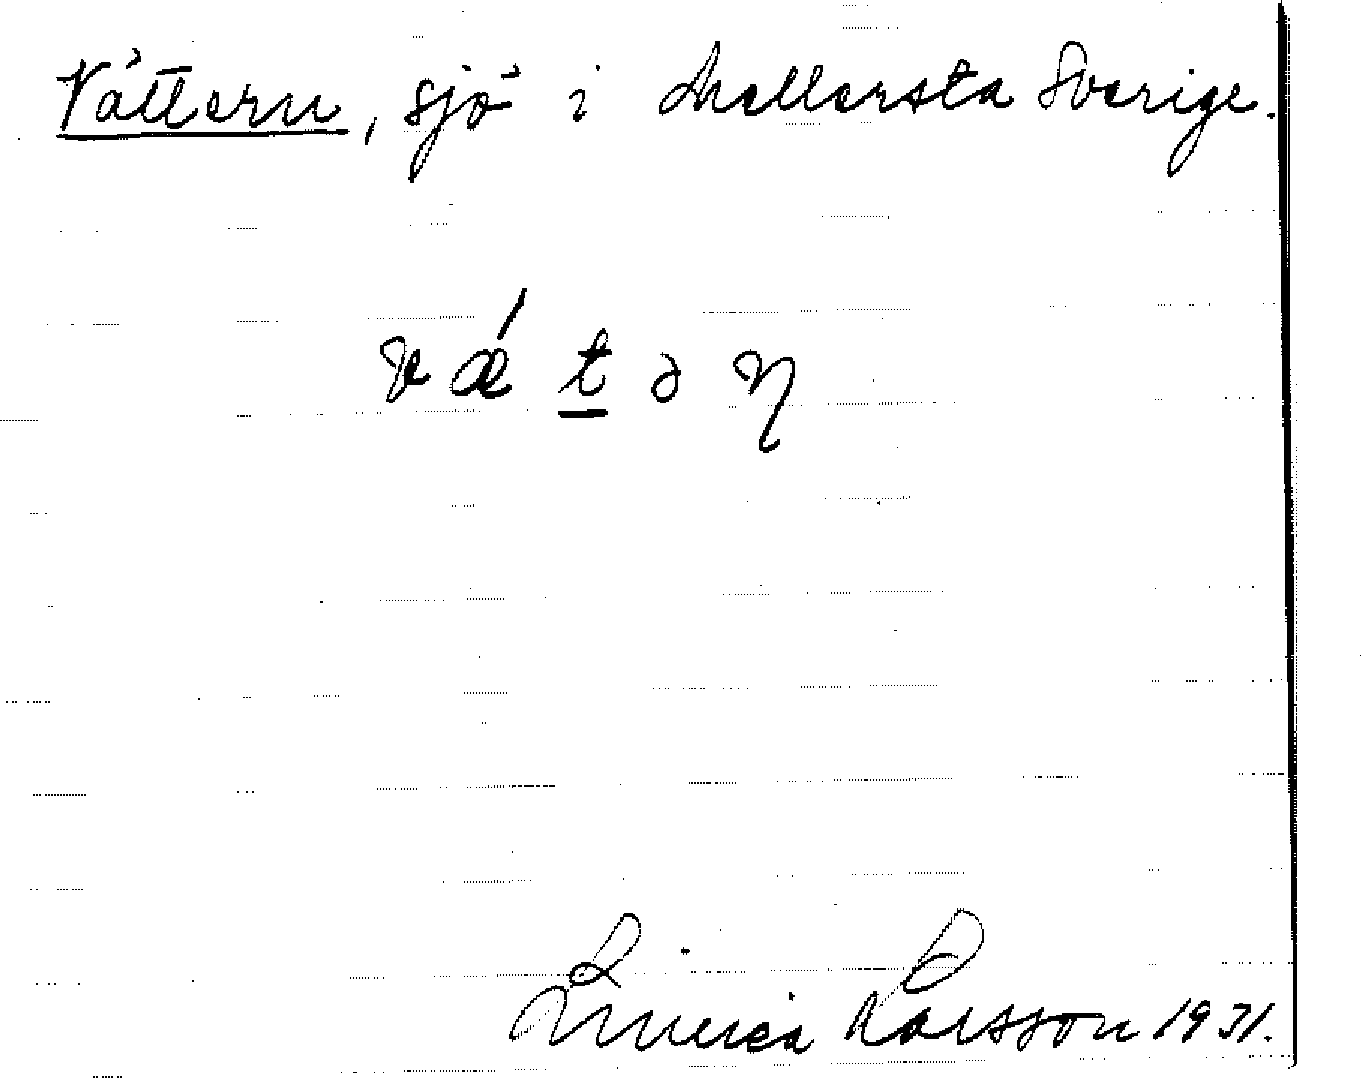 Vättern, sjö i mellersta Sverige.
vǽt̲əη
Linnéa Larsson 1931.